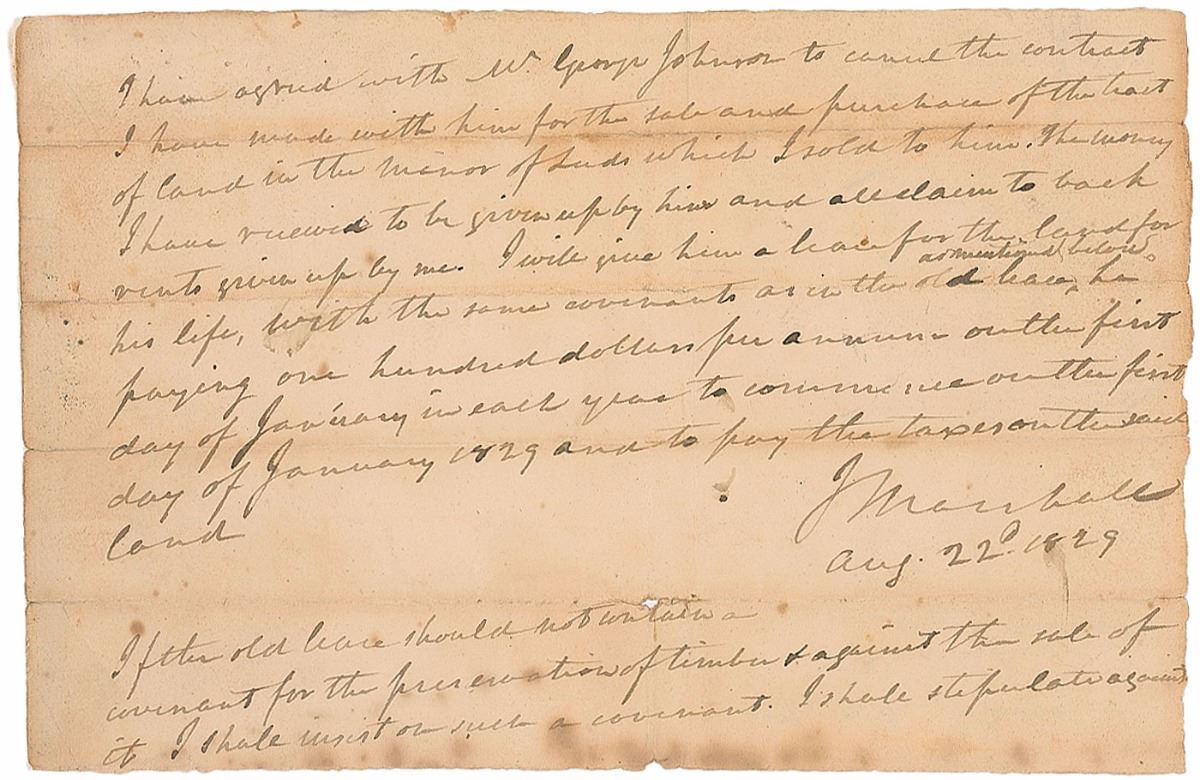 I have agreed with Mr. George Johnson to cancel the contract
I have made with him for the sale and purchase of the tract
of land in the Manor of Leeds which I sold to him. The money
I have received to be given up by him and all claim to back
rents given up by me. I will give him a lease for the land for
as mentioned below.
his life, with the same covenants as in the old lease, he
paying one hundred dollars per annum on the first
day of January in each year to commence on the first
day of January 1829 and to pay the taxes on the said
land
J Marshall
Aug. 22d. 1829
If the old lease should not contain a
covenant for the preservation of timber & against the sale of
it I shall insist on such a covenant. I shall stipulate against